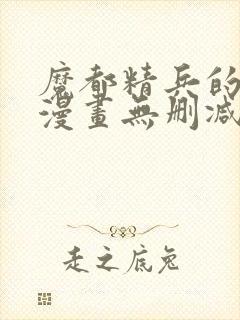 魔都精兵的
漫畫無刪减
走之底兔